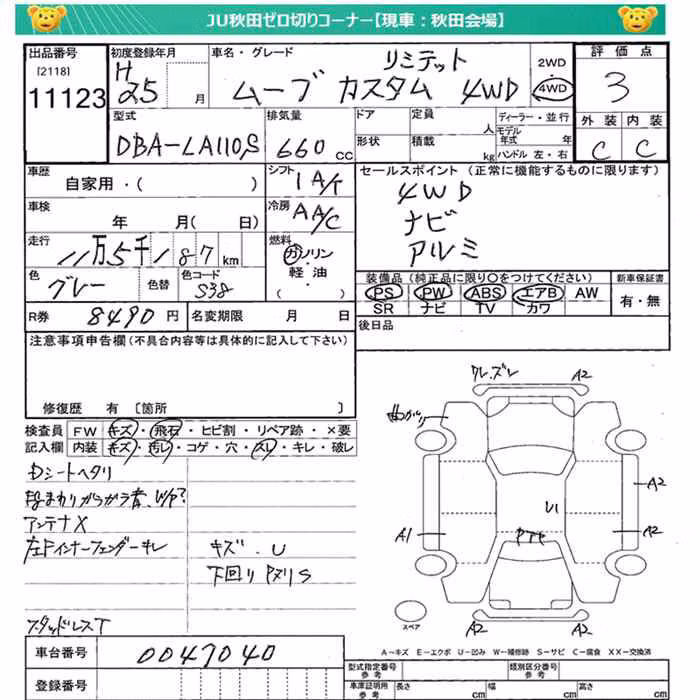 JU秋田ゼロ切りコーナー【現車：秋田会場】
出品番号
[2118]
11123
初度登録年月
H25 月
車名・グレード
リミテット
ムーブ カスタム 4WD
2WD
4WD
評価点
3
外装 内装
C C
型式
DBA-LA110S
排気量
660 CC
ドア
形状
定員 人
積載 kg
ディーラー・並行
モデル年式 年
ハンドル 左・右
車歴
自家用・( )
シフト
1A/T
セールスポイント (正常に機能するものに限ります)
4WD
ナビ
アルミ
車検
年 月( 日)
冷房
AA/C
走行
11万5千187km
燃料
ガソリン
軽油・
( )
色
グレー
色替
色コード
S38
装備品 (純正品に限り〇をつけてください)
PS PW ABS エアB AW
SR ナビ TV カワ
新車保証書
有・無
R券 8490 円
名変期限 月 日
後日品
注意事項申告欄(不具合内容等は具体的に記入して下さい)
修復歴 有 〔箇所 〕
検査員
記入欄
FW キズ・飛石・ヒビ割・リペア跡・×要
内装 キズ・汚レ・コゲ・穴・スレ・キレ・破レ
Dシートヘタリ
段まわりガラガラ音、W/P?
アンテナX
左Fインナーフェンダーキレ
キズ.U
下回りPヌリS
スタッドレスT
ワレ.ズレ
A2
曲がり
A2
U1
A1
A2
PTケ
A2
A2
スペア
A－キズ E－エクボ U－凹み W－補修跡 S－サビ C－腐食 XX－交換済
車台番号
0047040
登録番号
型式指定番号
参考
類別区分番号
参考
車庫証明用
参考
長さ cm
幅 cm
高さ cm